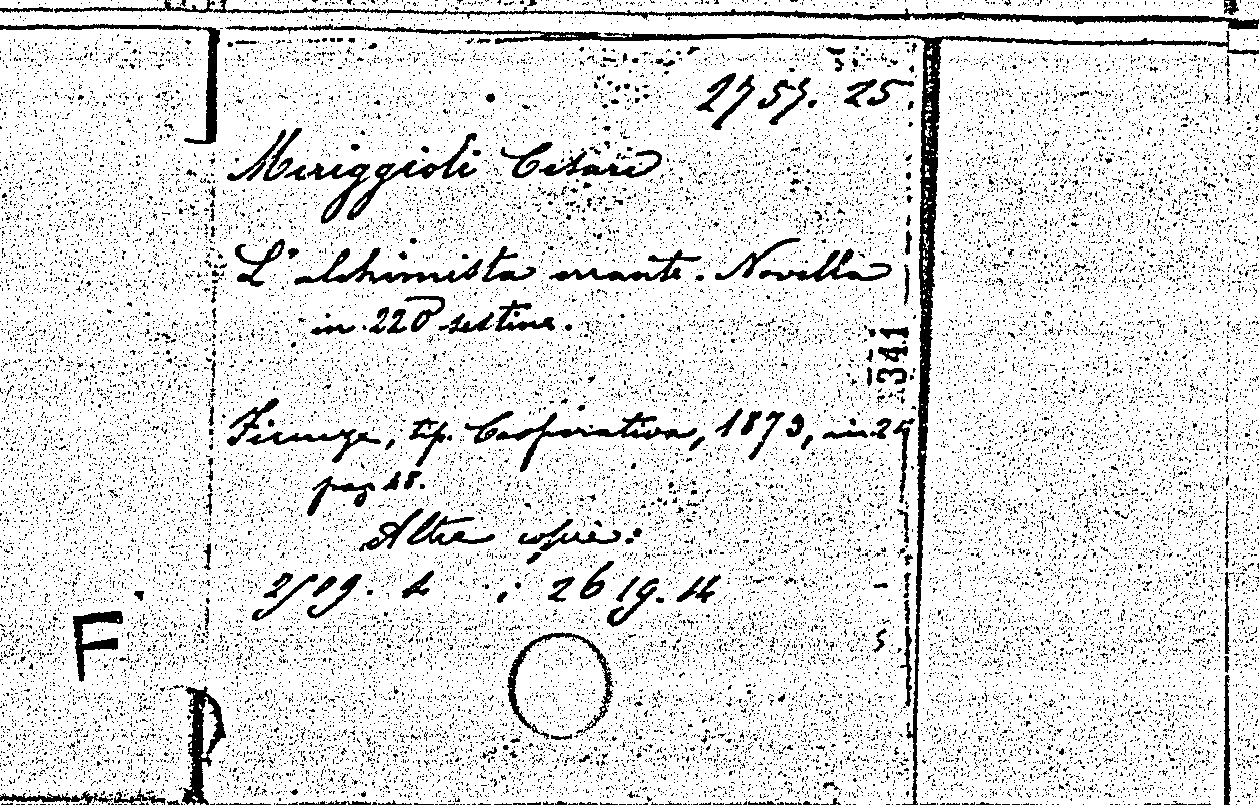 2757. 25
Meriggioli Cesare
L'alchimista errante. Novella
in 220 sestine.
341
Firenze, tip. Cooperativa, 1873, in 24
pag 48.
Altre copie:
2509. 4 ; 2619. 14
F